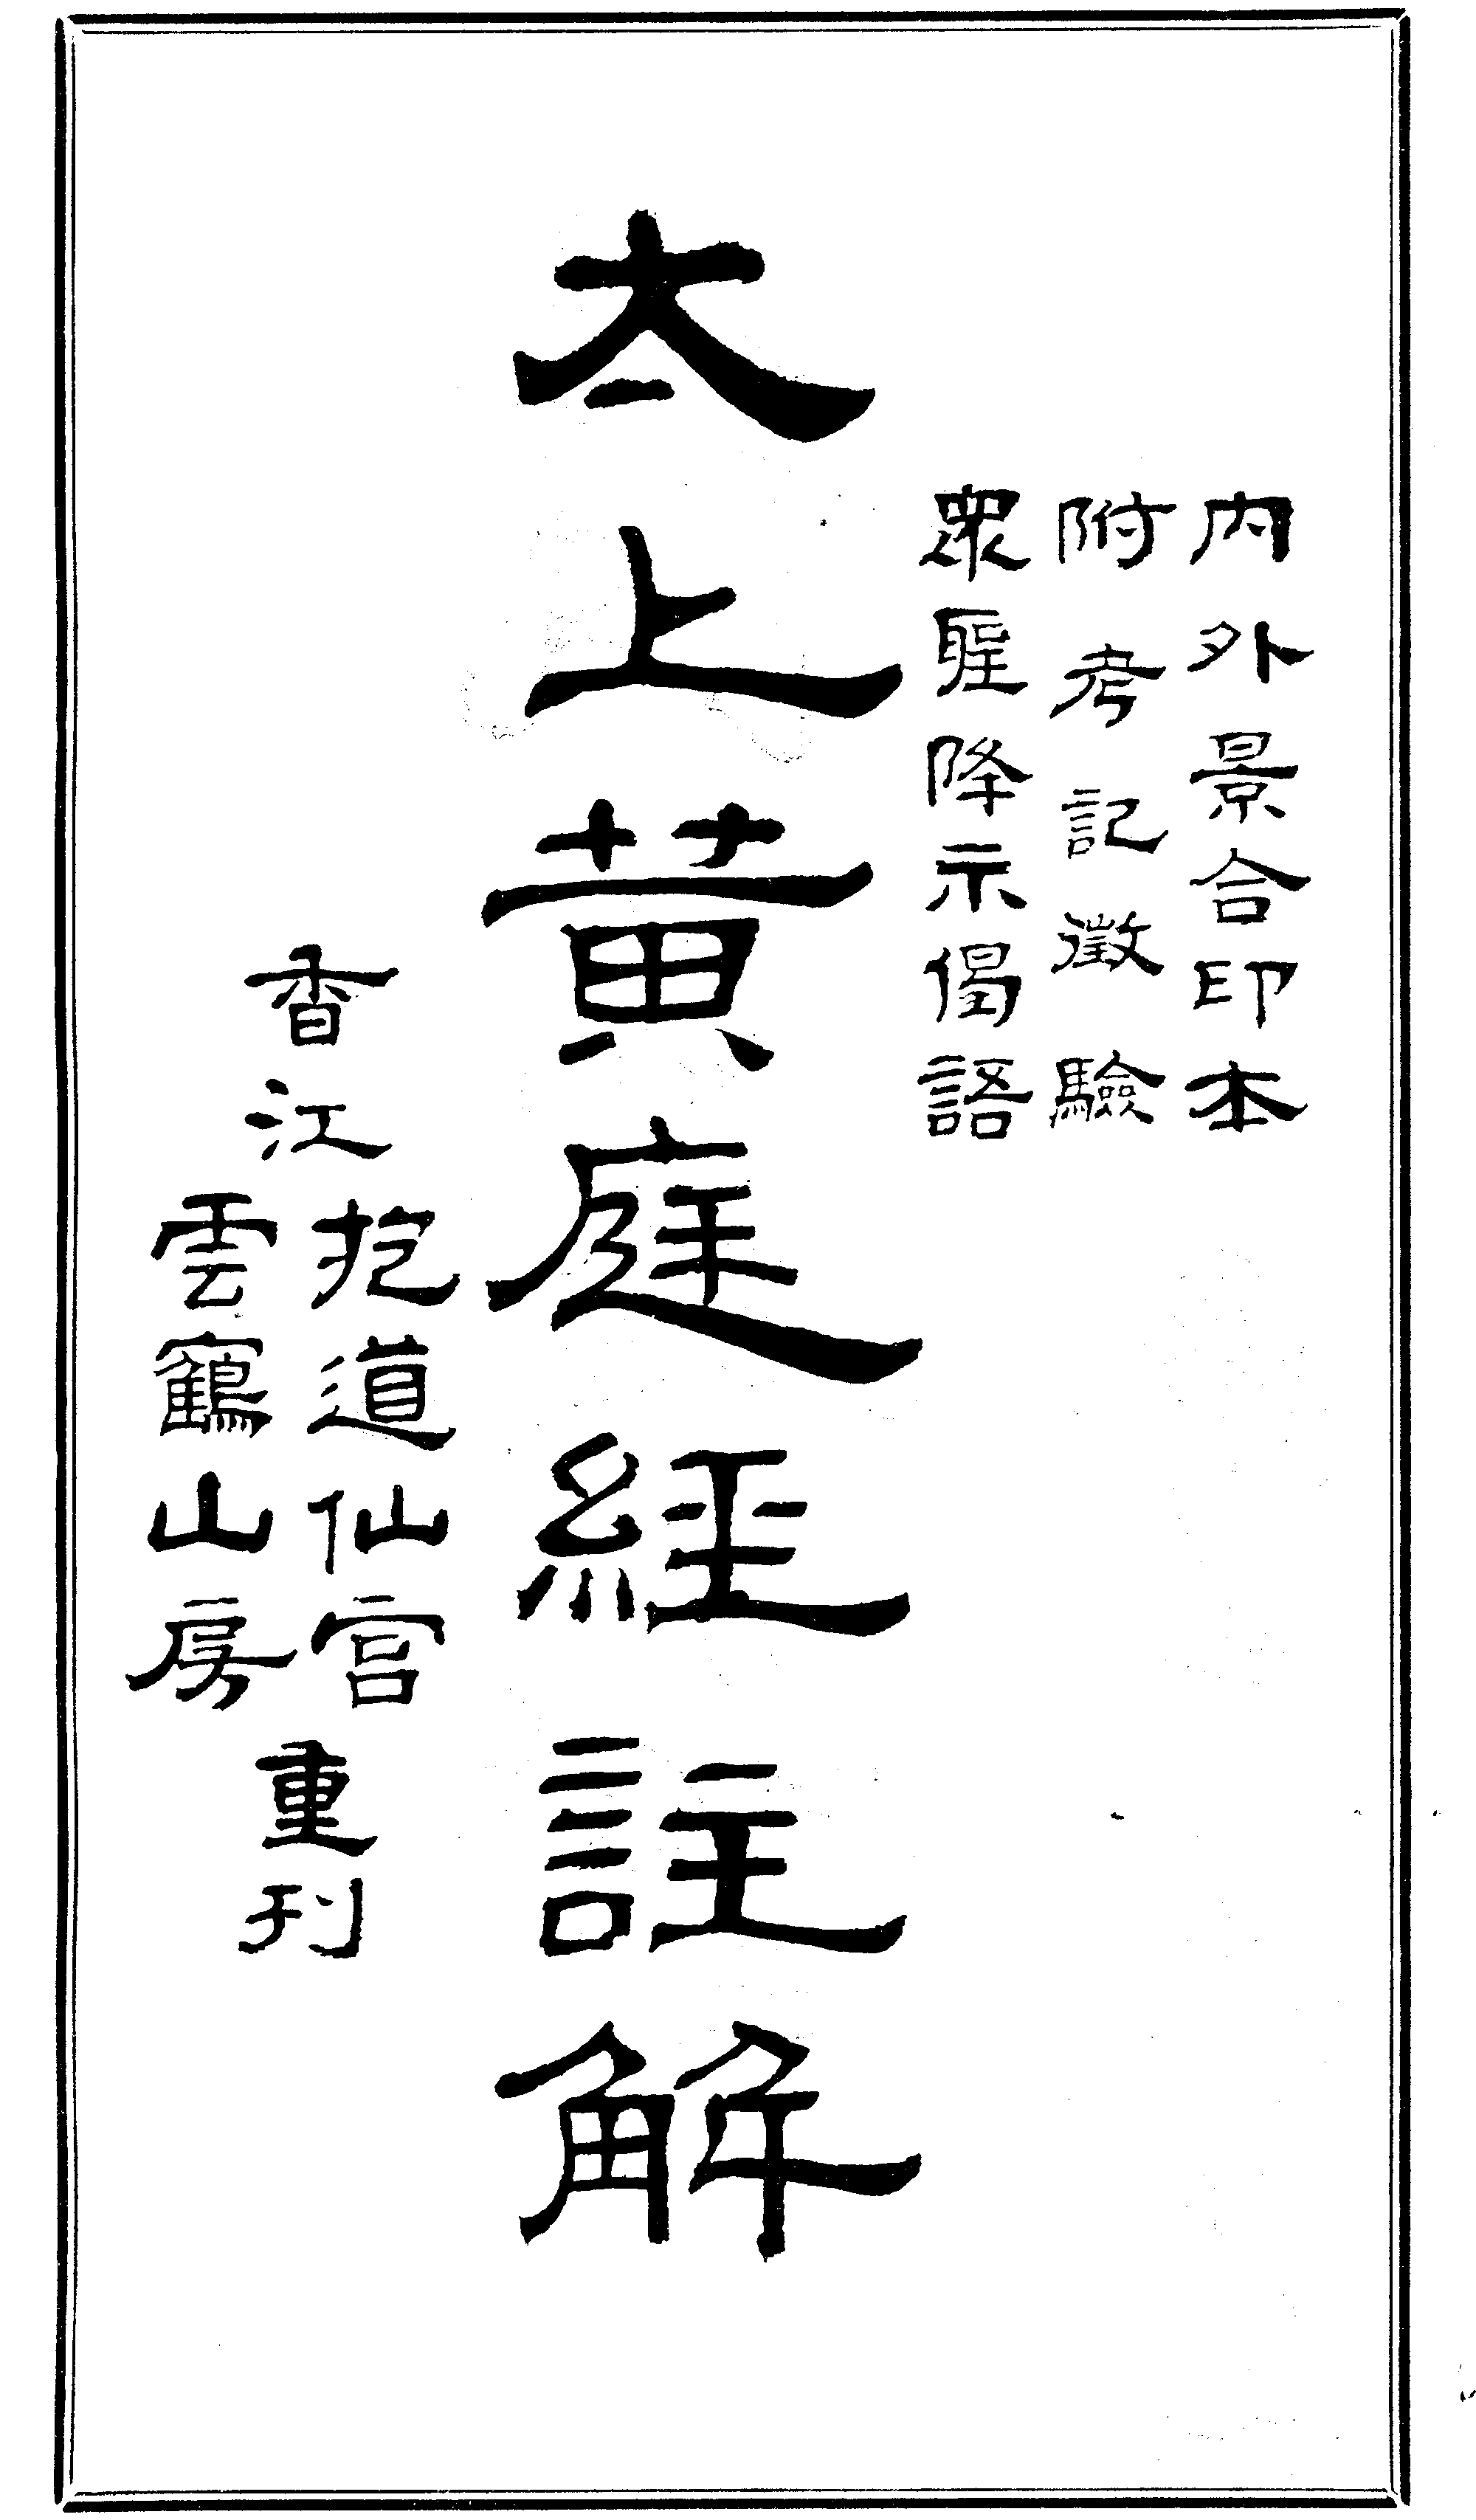 內外景合印本
附考記徵驗
眾聖降示偈語
太上黃庭經註解
香江
抱道仙宮
雲鶴山房
重刊